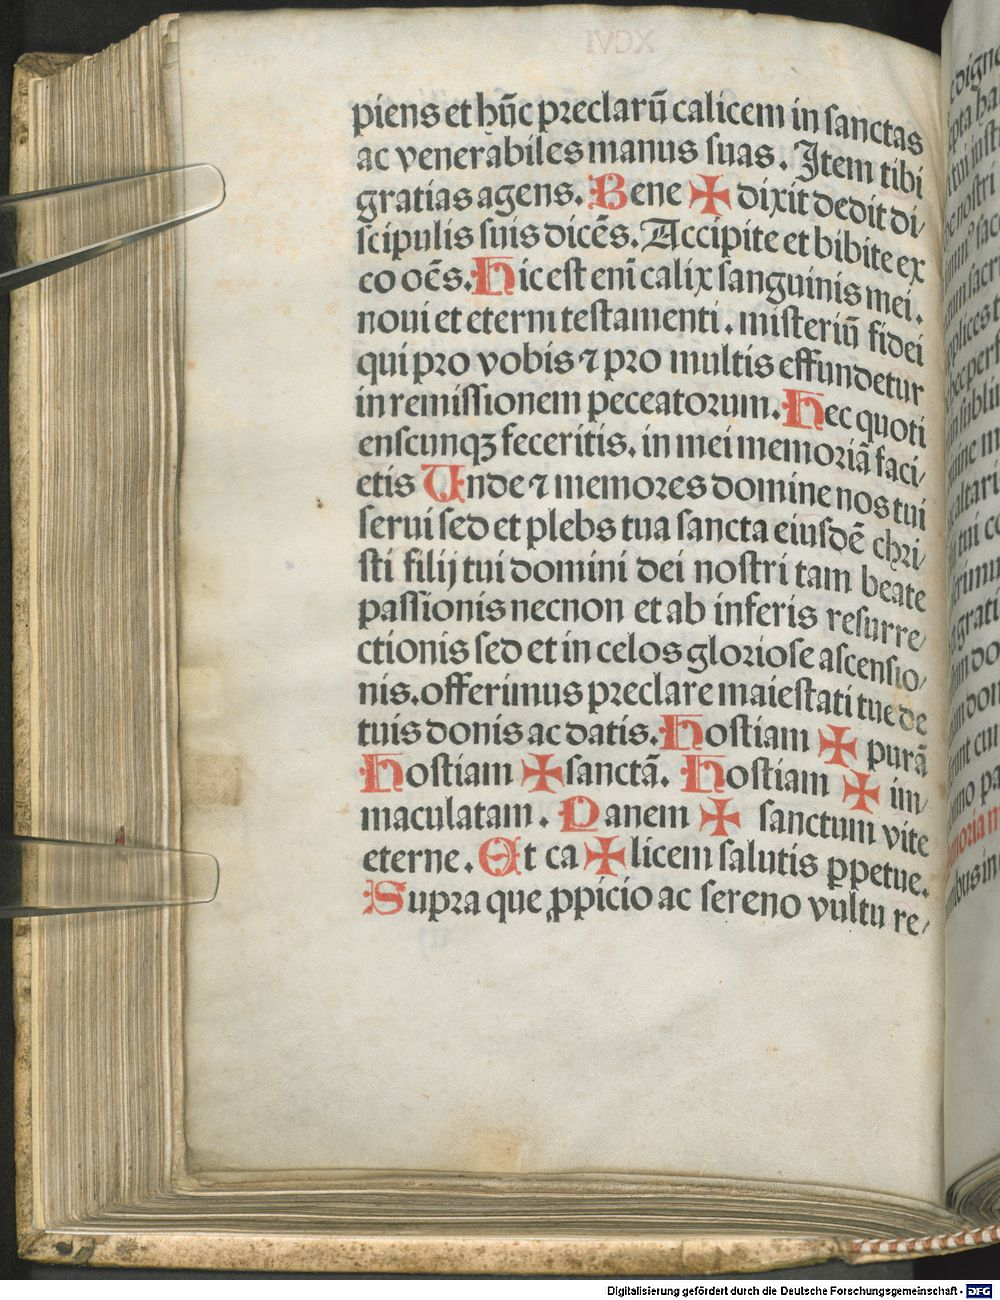 piens et hūc preclarū calicem in sanctas
ac venerabiles manus suas. Item tibi
gratias agens. Bene ✠ dixit dedit di/
scipulis suis dicēs. Accipite et bibite ex
eo oēs. Hic est enī calix sanguinis mei.
noui et eterni testamenti. misteriū fidei
qui pro vobis ⁊ pro multis effundetur
in remissionem peccatorum. Hec quoti
enscunqꝫ feceritis. in mei memoriā faci/
etis Unde ⁊ memores domine nos tui
serui sed et plebs tua sancta eiusdē chri/
sti filij tui domini dei nostri tam beate
passionis necnon et ab inferis resurre/
ctionis sed et in celos gloriose ascensio/
nis. offerimus preclare maiestati tue de
tuis donis ac datis. Hostiam ✠ purā
Hostiam ✠ sanctā. Hostiam ✠ im/
maculatam. Panem ✠ sanctum vite
eterne. Et ca ✠ licem salutis ꝑpetue.
Supra que ꝓpicio ac sereno vultu re/
Digitalisierung gefördert durch die Deutsche Forschungsgemeinschaft - DFG